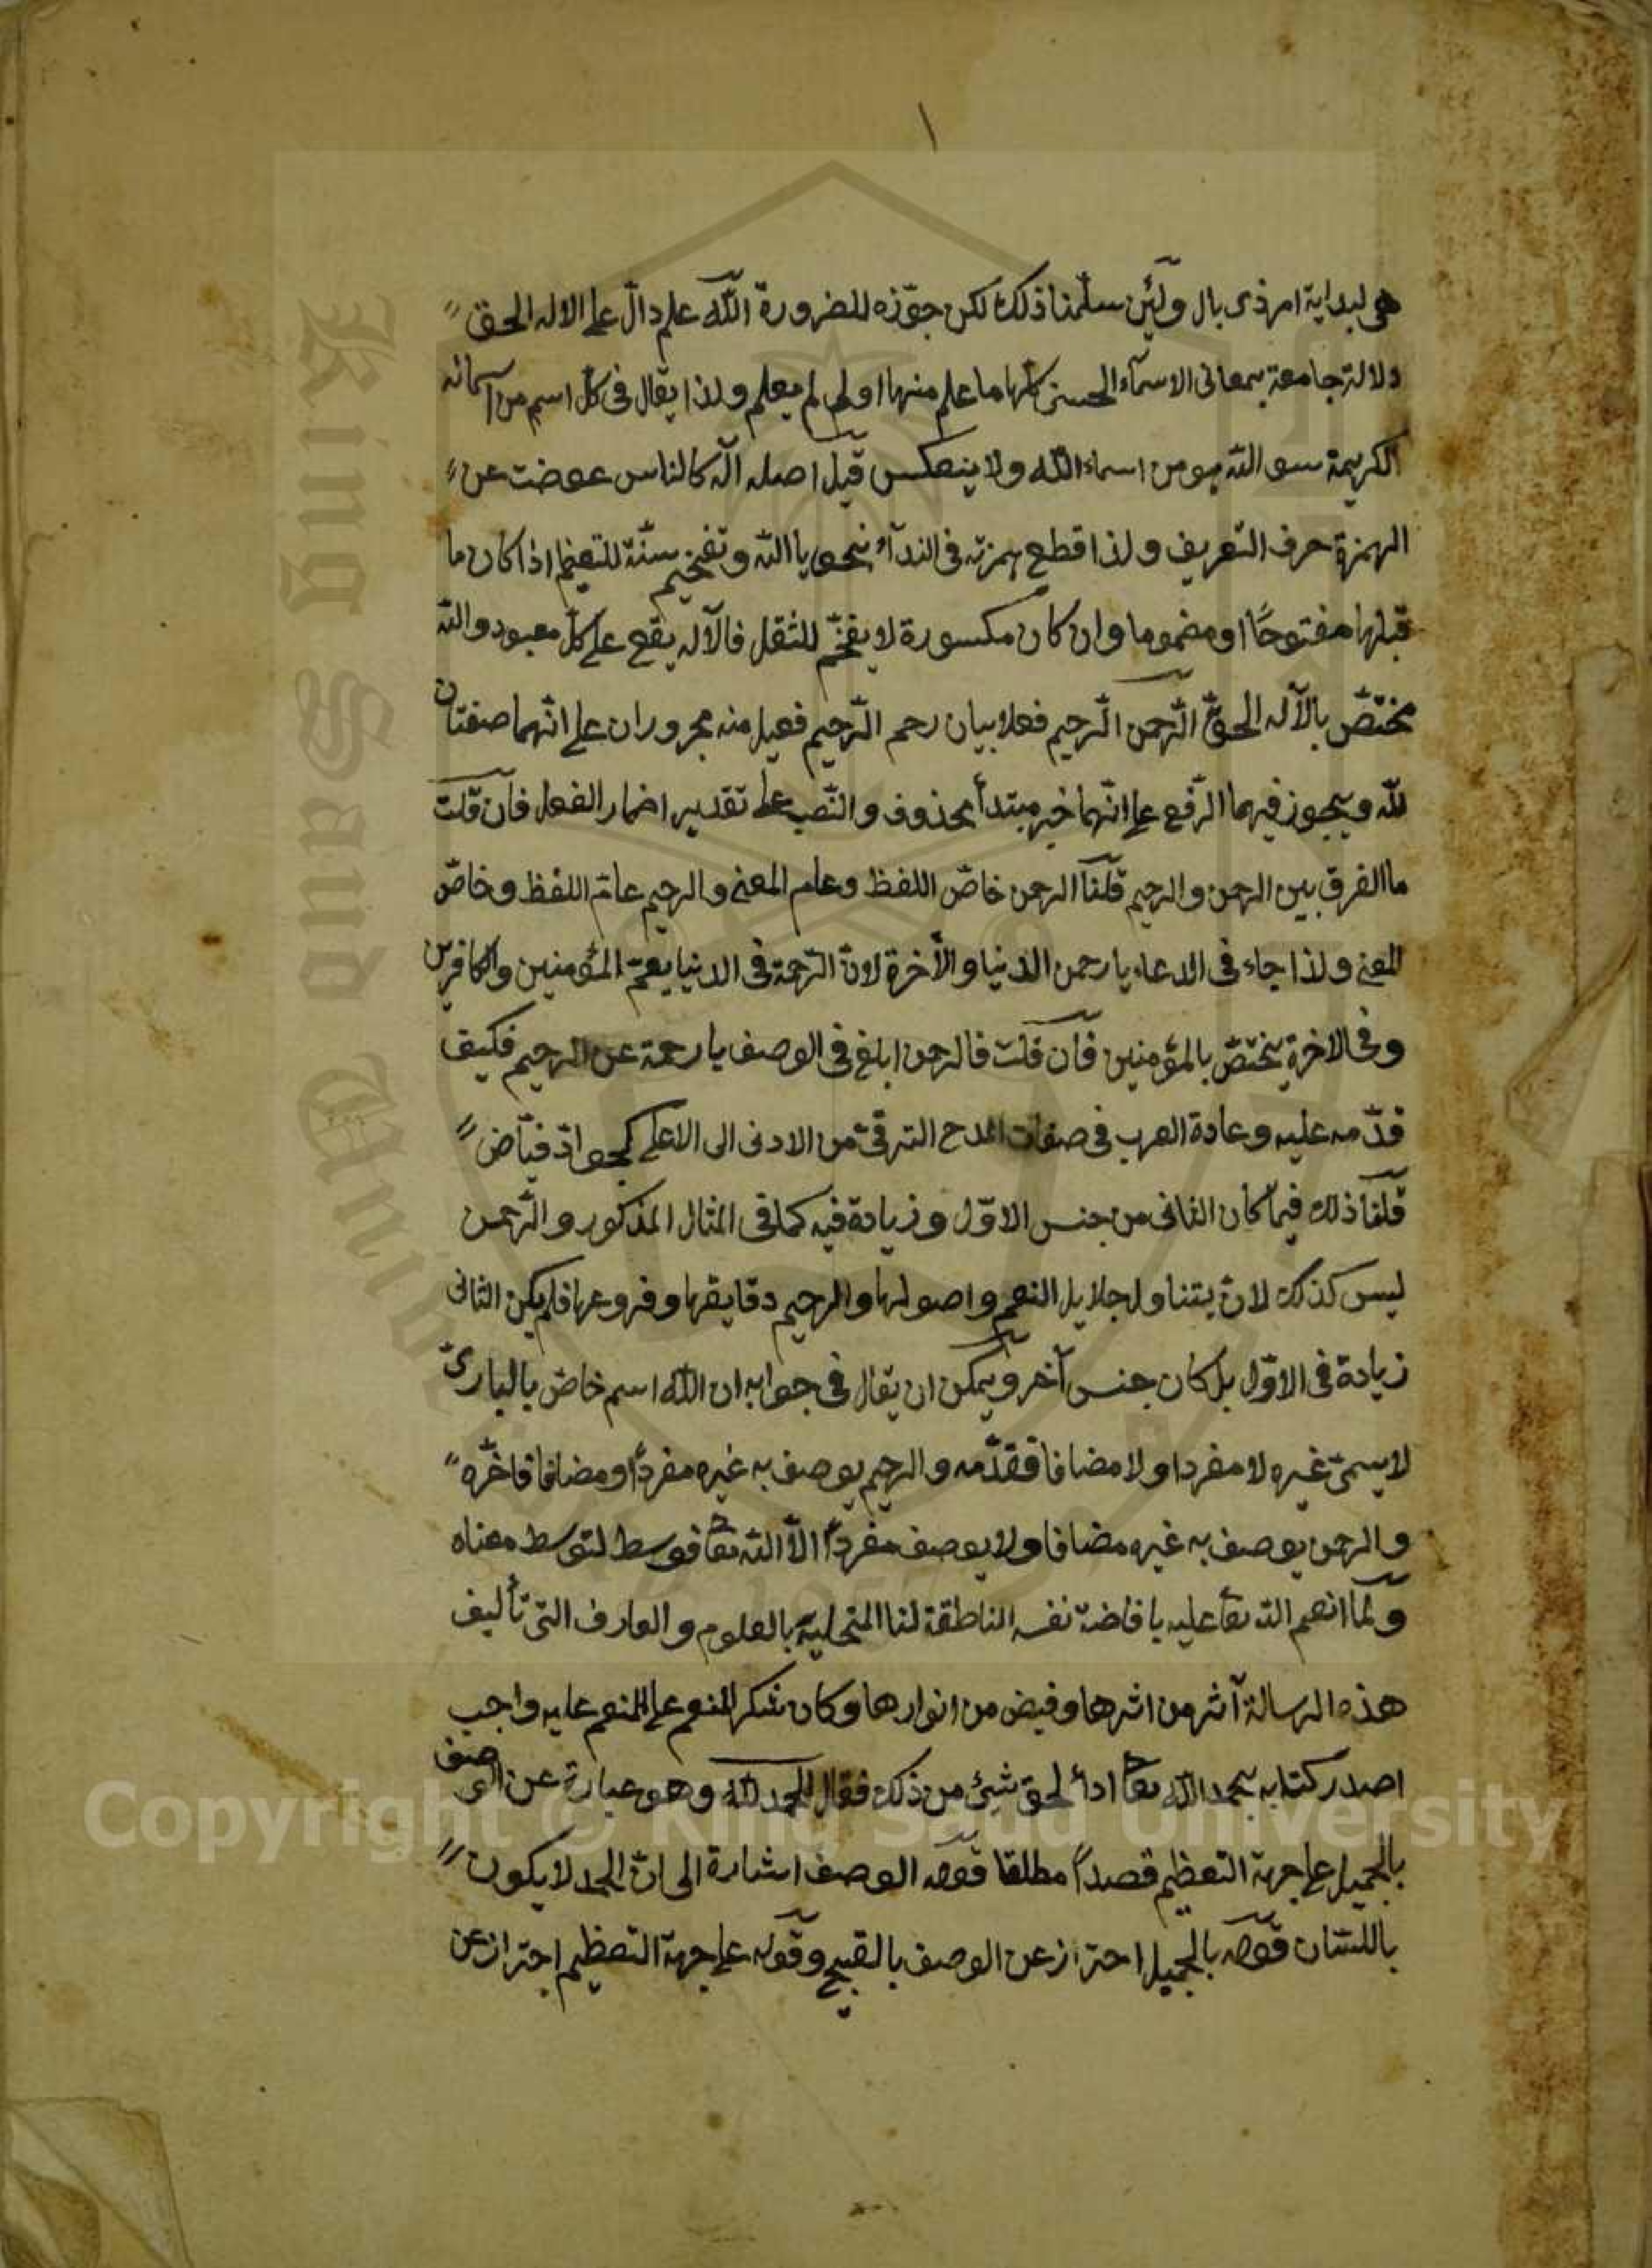 ١
هى لبداية امر ذى بال ولَئِن سلّمنا ذلك لكن جوّزه للضرورة اللّه علم دالّ على الاله الحق
دلالة جامعة بمعانى الاسمآء الحسنى كلّها ما علم منها او لم يعلم ولذا يقال فى كلّ اسم من اسمائه
الكريمة سو اللّه هو من اسماء اللّه ولا ينعكس قيل اصله اله كالناس عوضت عن
الهمزة حرف التّعريف ولذا قطع همزته فى الندآء نحو يا اللّه وتفخيم سنّة للتعظيم اذا كان ما
قبلها مفتوحًا او مضموما وان كان مكسورة لا يفخّم للثقل فالاله يقع على كلّ معبود واللّه
مختصّ بالآله الحقّ الرّحمن الرّحيم فعلا بيان رحم الرّحيم فعيل منه مجروران على انّهما صفتان
للّه ويجوز فيهما الرّفع على انّهما خبر مبتدأ محذوف والنّصب على تقدير اضمار الفعل فان قلت
ما الفرق بين الرحمن والرحيم قلنا الرحمن خاصّ اللفظ وعام المعنى والرحيم عامّ اللفظ وخاصّ
المعنى ولذا جاء فى الدعاء يا رحمن الدنيا والأخرة لانّ الرّحمة فى الدنيا يعمّ المؤمنين والكافرين
وفى الاخرة يختصّ بالمؤمنين فان قلت فالرحمن ابلغ فى الوصف يا رحمة عن الرحيم فكيف
قدّمه عليه وعادة العرب فى صفات المدح الترقى من الادنى الى الاعلى كجواد فيّاض
قلنا ذلك فيما كان الثانى من جنس الاوّل وزيادة فيه كما فى المثال المذكور والرّحمن
ليس كذلك لانّ يتناول جلايل النعم واصولها والرحيم دقايقها وفروعها فلم يكن الثانى
زيادة فى الاوّل بل كان جنس آخر ويمكن ان يقال فى جوابه ان اللّه اسم خاصّ بالبارئ
لا يسمّى غيره لا مفردا ولا مضافا فقدّمه والرحيم يوصف به غيره مفردًا ومضافا فاخّره
والرحمن يوصف به غيره مضافا ولا يوصف مفردًا الّا اللّه تعا فوسط لتوسط معناه
ولمّا انعم اللّه تعا عليه بافاضة نفسه الناطقة لنا المتحلية بالعلوم والعارف التى تأليف
هذه الرسالة آثر من اثرها وفيض من انوارها وكان شكر المنعم على المنعم عليه واجب
اصدر كتابه بحمد اللّه تعا ادأ لحق شئ من ذلك فقال الحمد للّه وهو عبارة عن الوصف
بالجميل على جهة التعظيم قصدًا مطلقا قوله الوصف اشارة الى انّ الحمد لا يكون
باللسان قوله بالجميل احتراز عن الوصف بالقبيح وقوله على جهة التعظيم احتراز عن
King Saud University
1957
Copyright © King Saud University